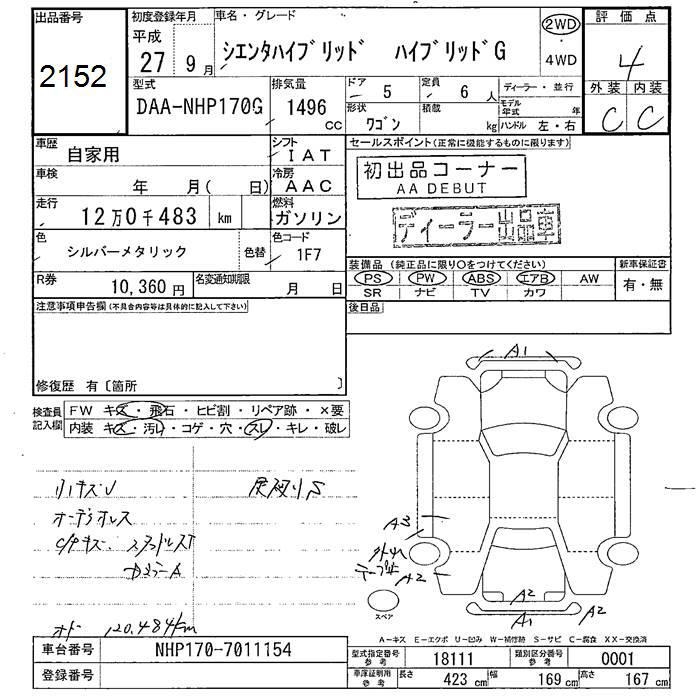 出品番号
2152
初度登録年月
平成
27 9月
車名・グレード
シエンタハイブリッド ハイブリッドG
2WD
・
4WD
評価点
4
外装 内装
C C
型式
DAA-NHP170G
排気量
1496
CC
ドア
5
定員
6 人
形状
ワゴン
積載
kg
ディーラー・並行
モデル年式 年
ハンドル 左・右
車歴
自家用
シフト
IAT
車検
年 月( 日)
冷房
AAC
走行
12万0千483 km
燃料
ガソリン
色
シルバーメタリック
色替
色コード
1F7
R券
10,360円
名変通知期限
月 日
セールスポイント(正常に機能するものに限ります)
初出品コーナー
AA DEBUT
ディーラー出品車
装備品(純正品に限り○をつけてください)
PS PW ABS エアB AW
SR ナビ TV カワ
新車保証書
有・無
後日品
注意事項申告欄(不具合内容等は具体的に記入して下さい)
修復歴 有〔箇所 〕
検査員記入欄
FW キズ・飛石・ヒビ割・リペア跡・×要
内装 キズ・汚レ・コゲ・穴・スレ・キレ・破レ
オーディオレス
オド 120,484km
A1
A3
A2
A2
A1
A2
スペア
A-キズ E-エクボ U-凹み W-補修跡 S-サビ C-腐食 XX-交換済
車台番号
NHP170-7011154
登録番号
型式指定番号
参考
18111
類別区分番号
参考
0001
車庫証明用
参考
長さ
423 cm
幅
169 cm
高さ
167 cm